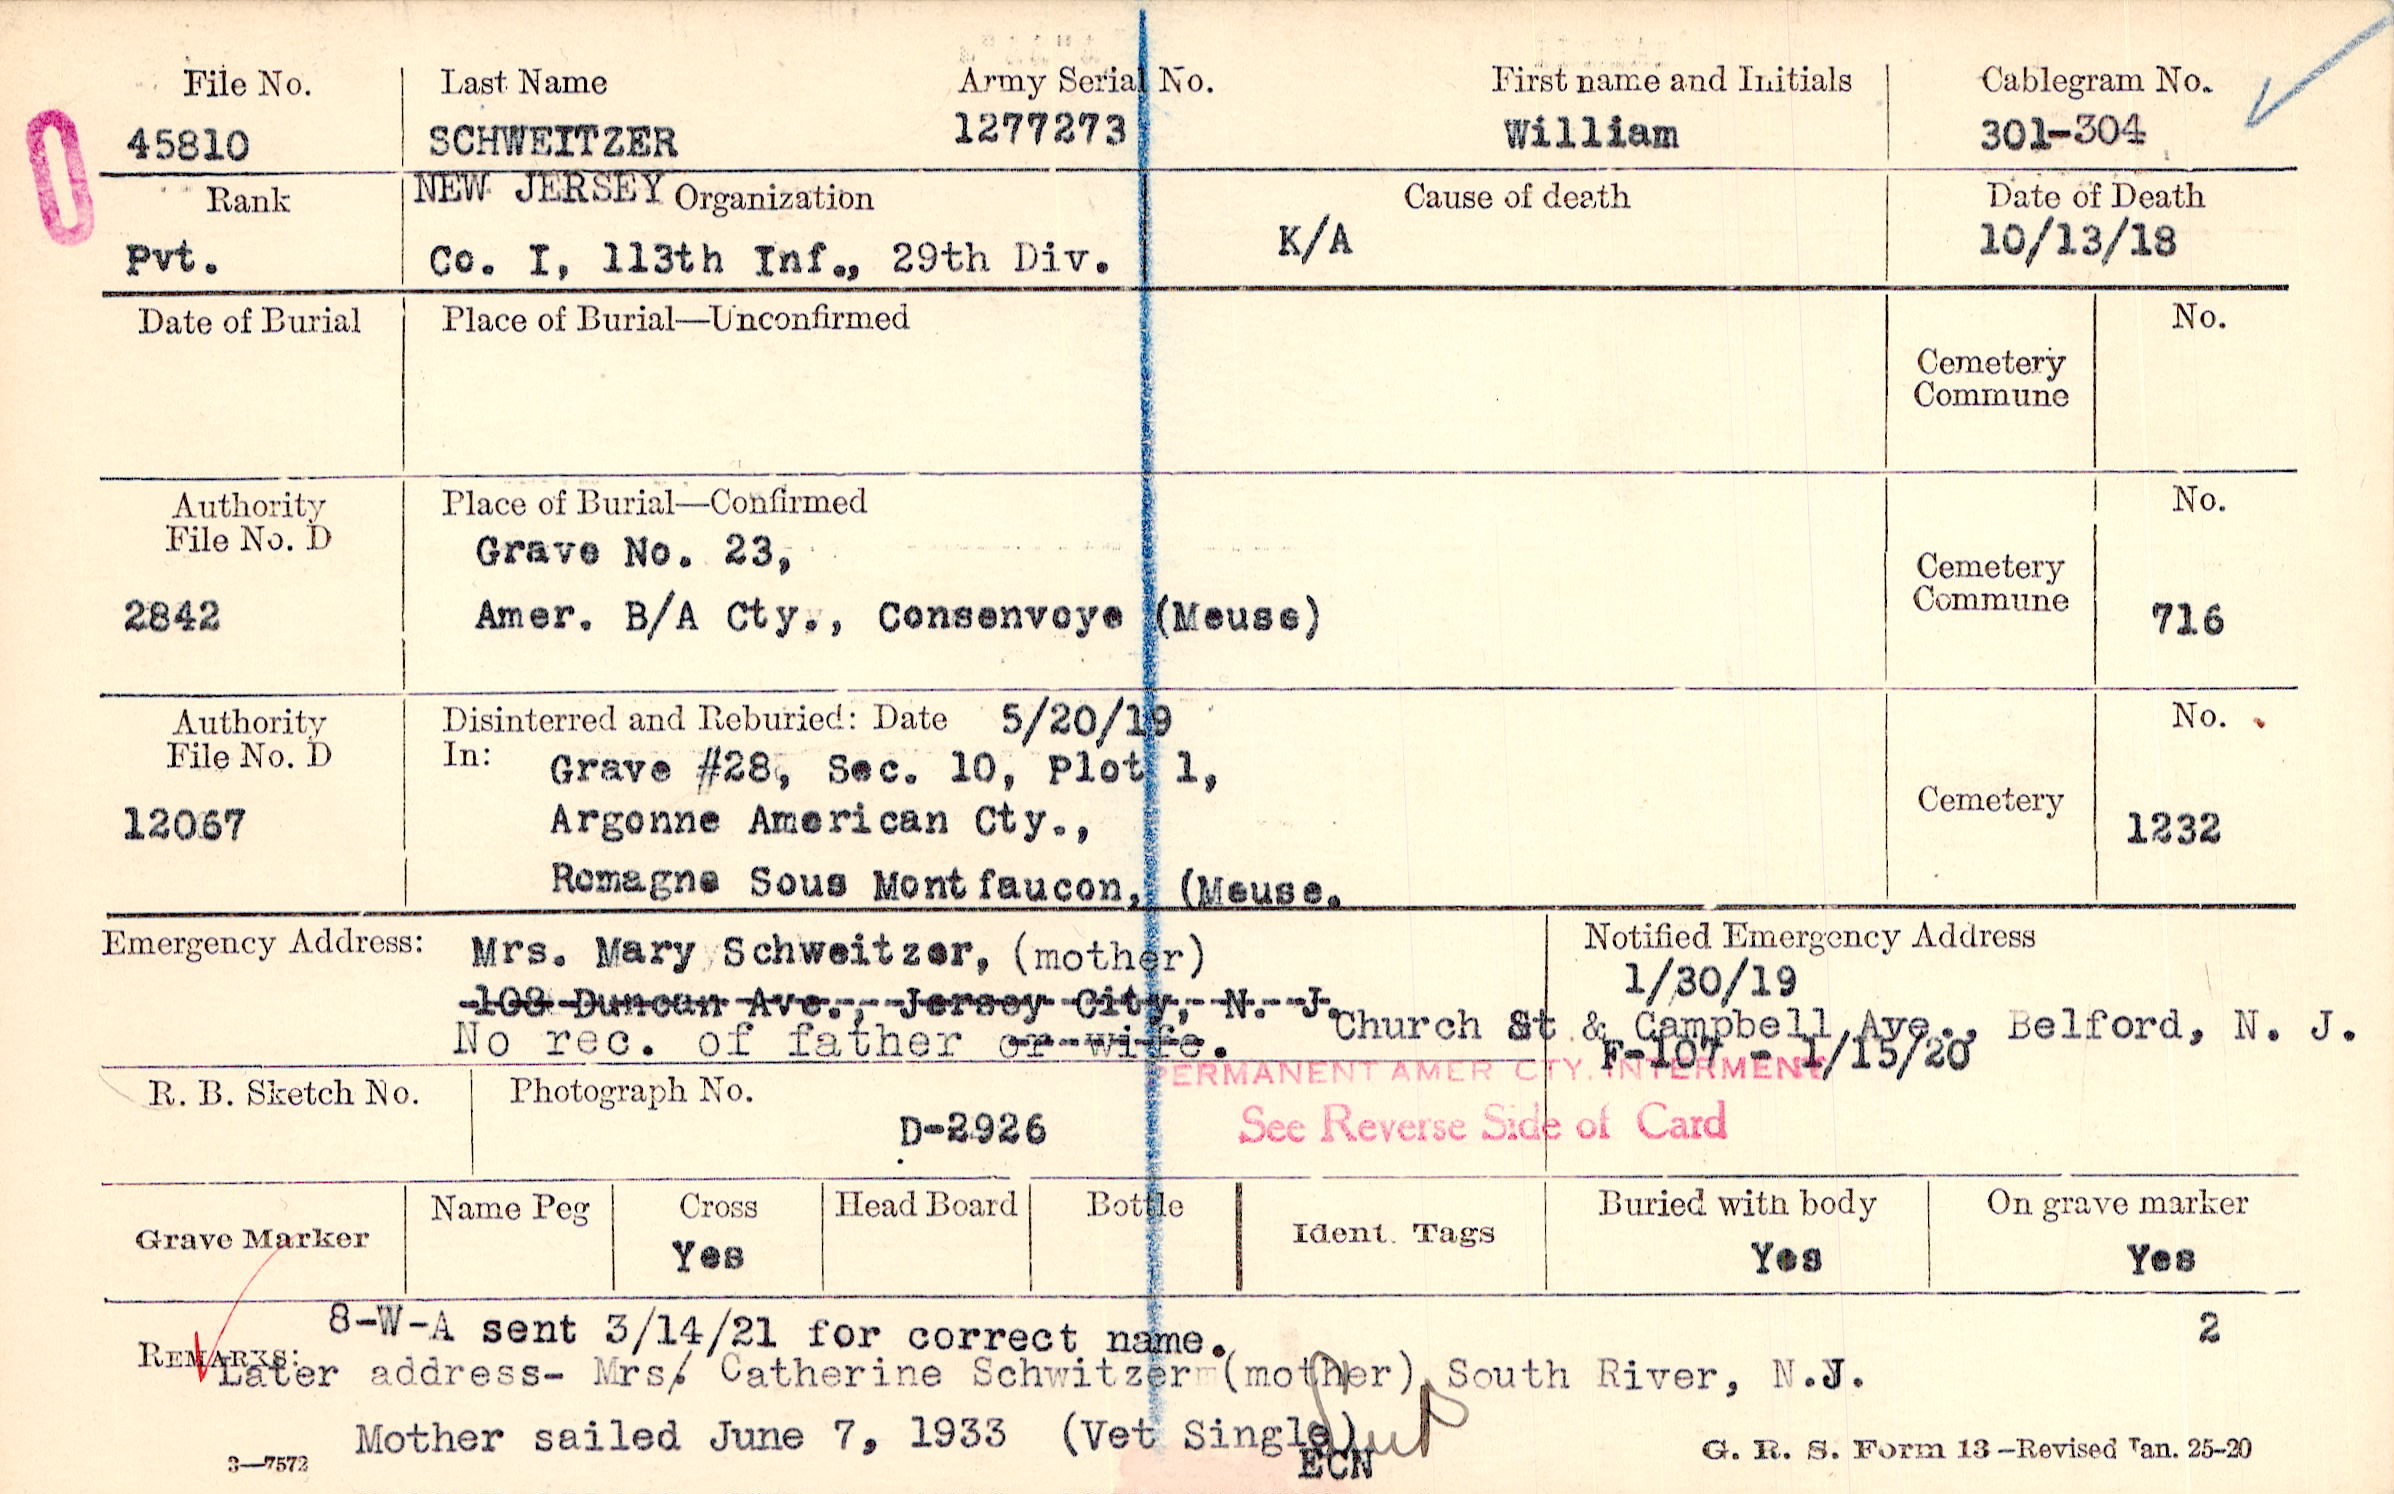 File No. Last Name Army Serial No. First name and Initials Cablegram No.
45810 SCHWEITZER 1277273 William 301-304
Rank NEW JERSEY Organization Cause of death Date of Death
Pvt. Co. I, 113th Inf., 29th Div. K/A 10/13/18
Date of Burial Place of Burial—Unconfirmed No.
Cemetery
Commune
Authority Place of Burial—Confirmed No.
File No. D Grave No. 23, Cemetery
2842 Amer. B/A Cty., Consenvoye (Meuse) Commune 716
Authority Disinterred and Reburied: Date 5/20/19 No.
File No. D In: Grave #28, Sec. 10, Plot 1,
12067 Argonne American Cty., Cemetery 1232
Romagne Sous Montfaucon, (Meuse.
Emergency Address: Mrs. Mary Schweitzer, (mother) Notified Emergency Address
1/30/19
108 Duncan Ave., Jersey City, N. J.
Church St & Campbell Ave., Belford, N. J.
No rec. of father or wife.
F-107 - 1/15/20
PERMANENT AMER CTY. INTERMENT
R. B. Sketch No. Photograph No.
D-2926 See Reverse Side of Card
Grave Marker Name Peg Cross Head Board Bottle Ident. Tags Buried with body On grave marker
Yes Yes Yes
8-W-A sent 3/14/21 for correct name. 2
REMARKS:
Later address- Mrs. Catherine Schwitzer (mother) South River, N.J.
Mother sailed June 7, 1933 (Vet Single)
ECN
3—7572 G. R. S. Form 13—Revised Jan. 25-20